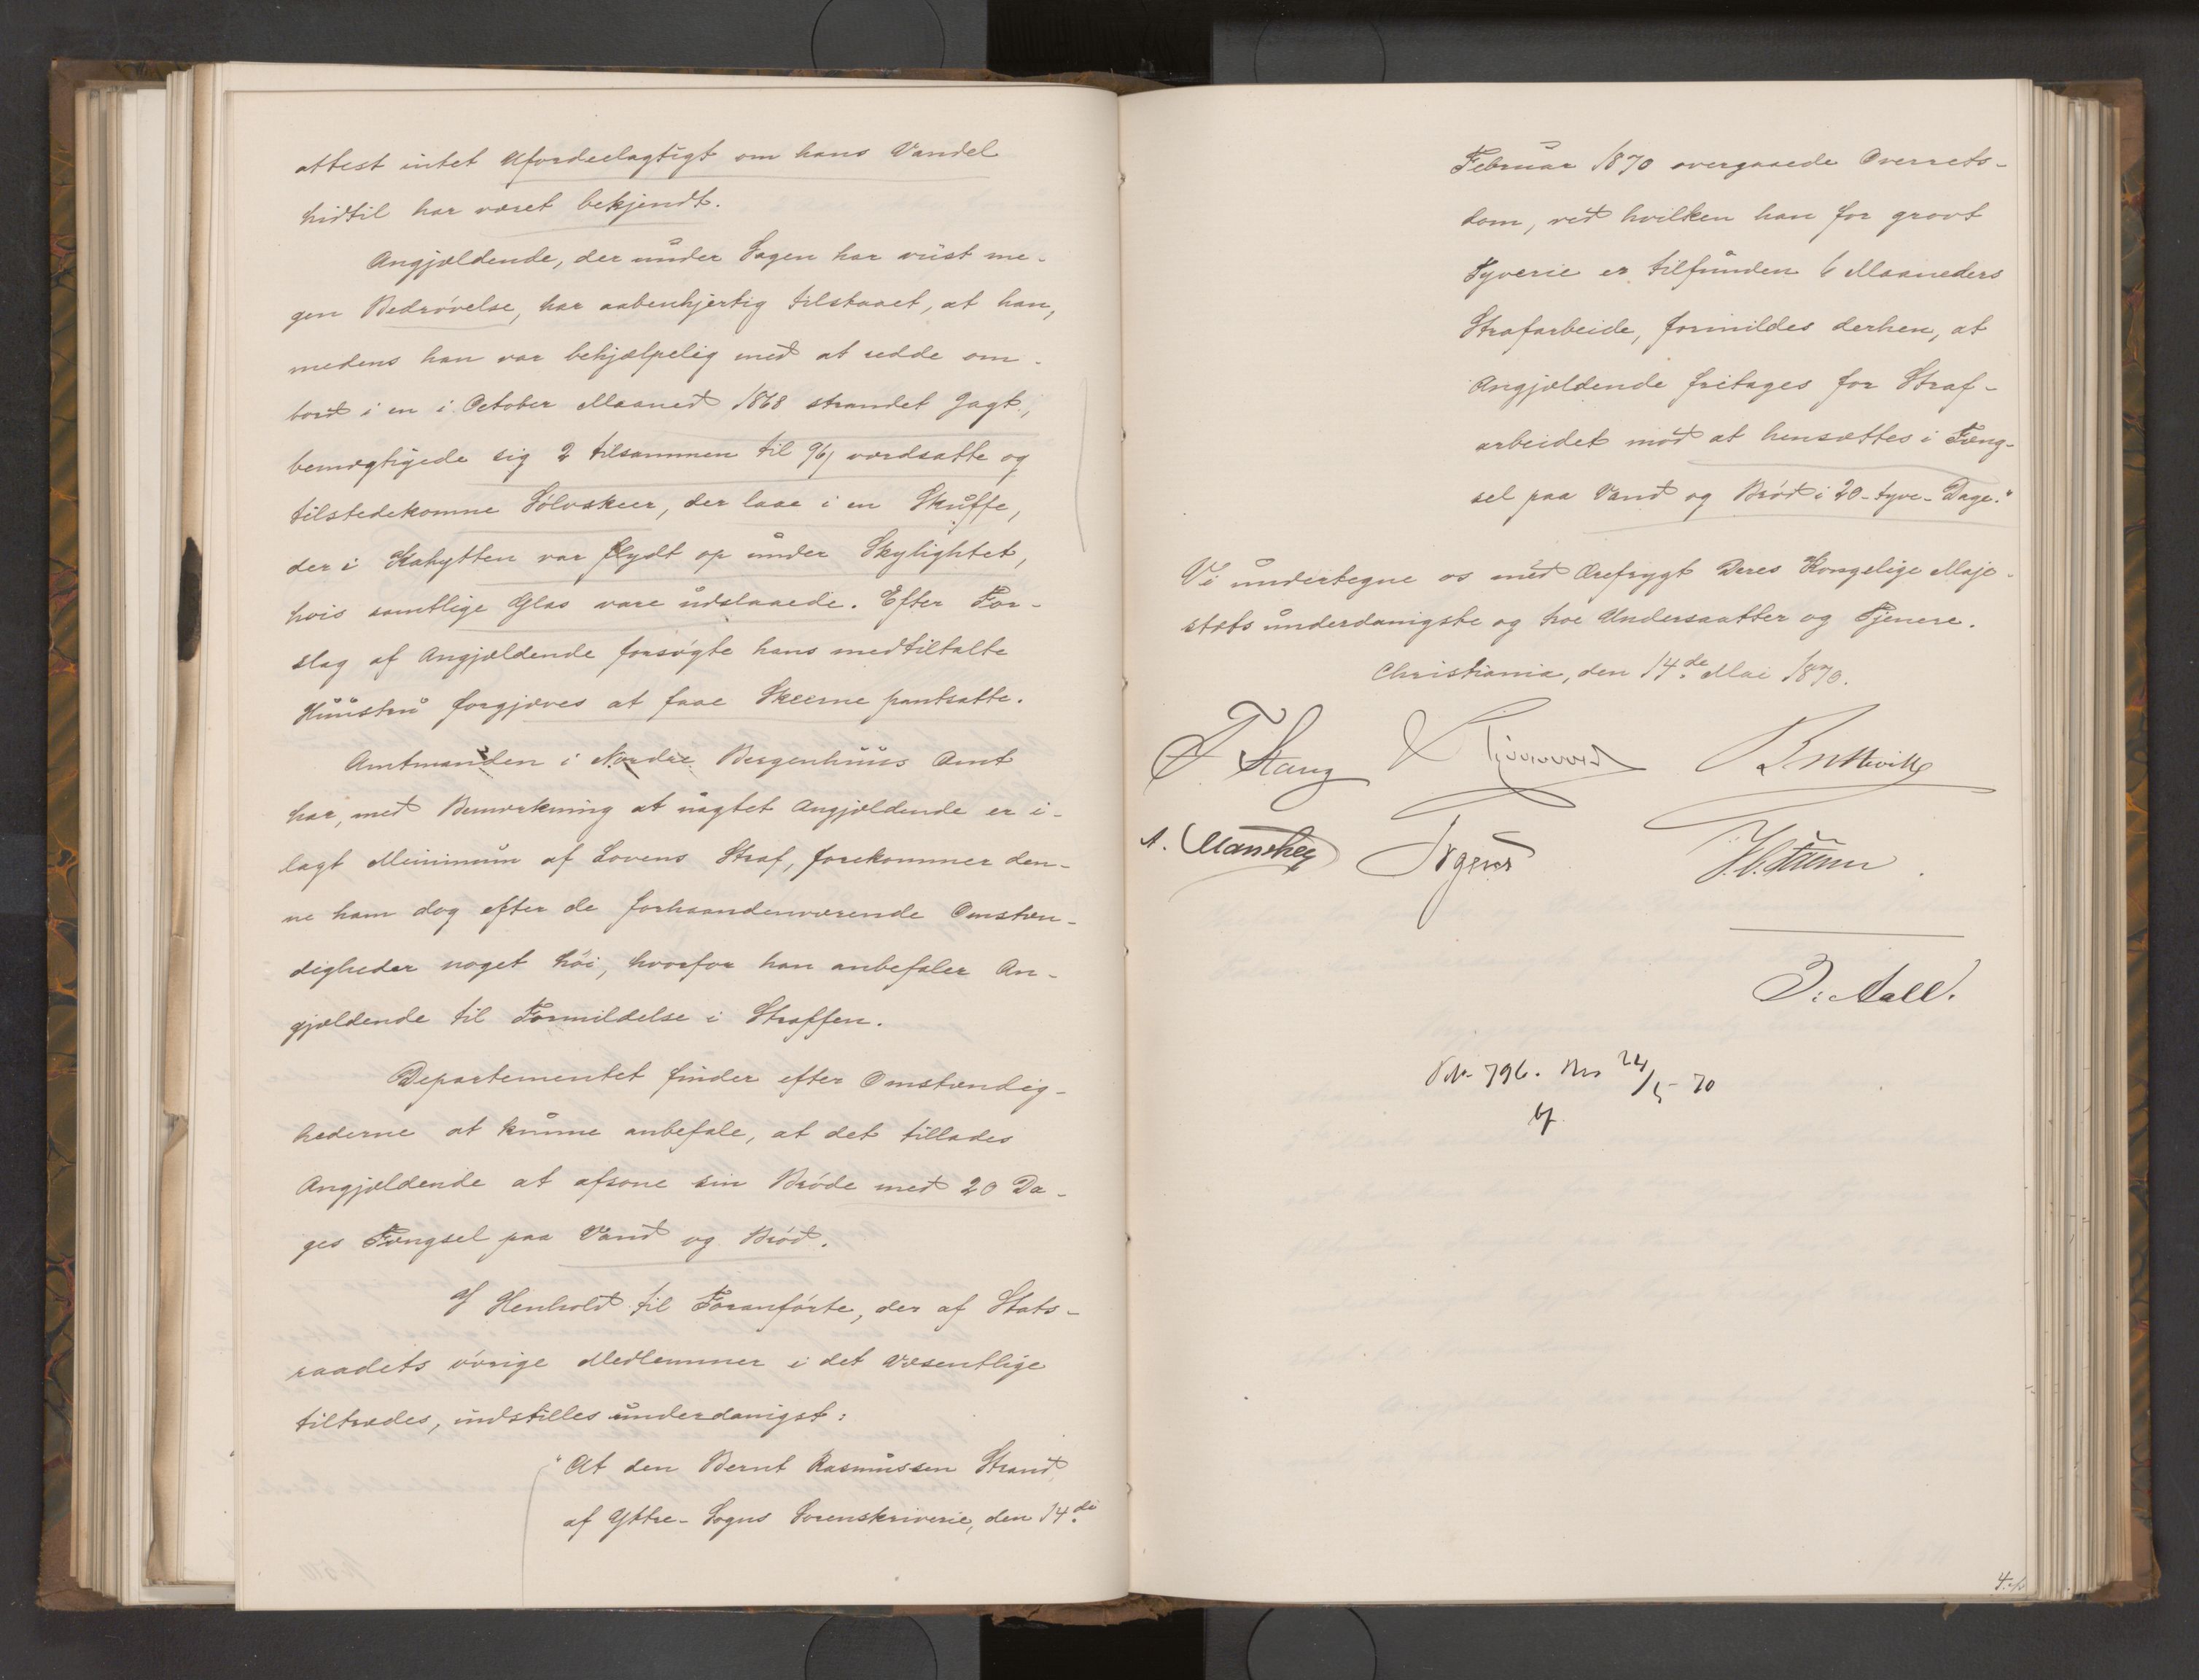 attest intet Ufordeelagtigt om hans Vandel
hidtil har været bekjendt.
Angjældende, der under Sagen har viist me-
gen Bedrøvelse, har aabenhjertig tilstaaet, at han,
medens han var behjælpelig med at redde om-
bord i en i October Maaned 1868 strandet Jagt,
bemægtigede sig 2 tilsammen til 96 β værdsatte og
tilstedekomne Sølvskeer, der laae i en Skuffe,
der i Kahytten var flydt op under Skylightet,
hvis samtlige Glas vare udslaaede. Efter For-
slag af Angjældende forsøgte hans medtiltalte
Huustru forgjæves at faae Skeerne pantsatte.
Amtmanden i Nordre Bergenhuus Amt
har, med Bemærkning at uagtet Angjældende er i-
lagt Minimum af Lovens Straf, forekommer den-
ne ham dog efter de forhaandenværende Omstæn-
digheder noget høi, hvorfor han anbefaler An-
gjældende til Formildelse i Straffen.
Departementet finder efter Omstændig-
hederne at kunne anbefale, at det tillades
Angjældende at afsone sin Brøde med 20 Da-
ges Fængsel paa Vand og Brød.
I Henhold til Foranførte, der af Stats-
raadets øvrige Medlemmer i det Væsentlige
tiltrædes, indstilles underdanigst:
"At den Bernt Rasmussen Strand
af Yttre-Sogns Sorenskriverie, den 14de
Februar 1870 overgaaede Overrets-
dom, ved hvilken han for grovt
Tyverie er tilfunden 6 Maaneders
Strafarbeide, formildes derhen, at
Angjældende fritages for Straf-
arbeidet mod at hensættes i Fæng-
sel paa Vand og Brød i 20-tyve-Dage."
Vi undertegne os med Ærefrygt Deres Kongelige Maje-
stæts underdanigste og troe Undersaatter og Tjenere.
Christiania, den 14de Mai 1870.
F Stang
A. Manthey Irgens
J. Aall.
796. 24/5 70